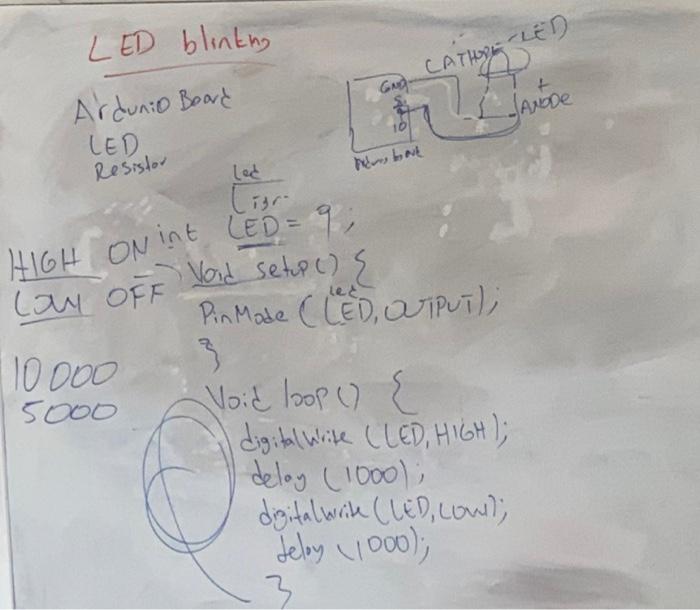 LED blinkng
CATHODE
LED
GND
+
ANODE
-
10
Ardunio Board
LED
Resistor
Led
int LED = 9;
HIGH ON
Void setup() {
LOW OFF
led
PinMode (LED, OUTPUT);
}
10000
5000
Void loop() {
digitalWrite (LED, HIGH);
delay (1000);
digitalwrite (LED, LOW);
delay (1000);
}